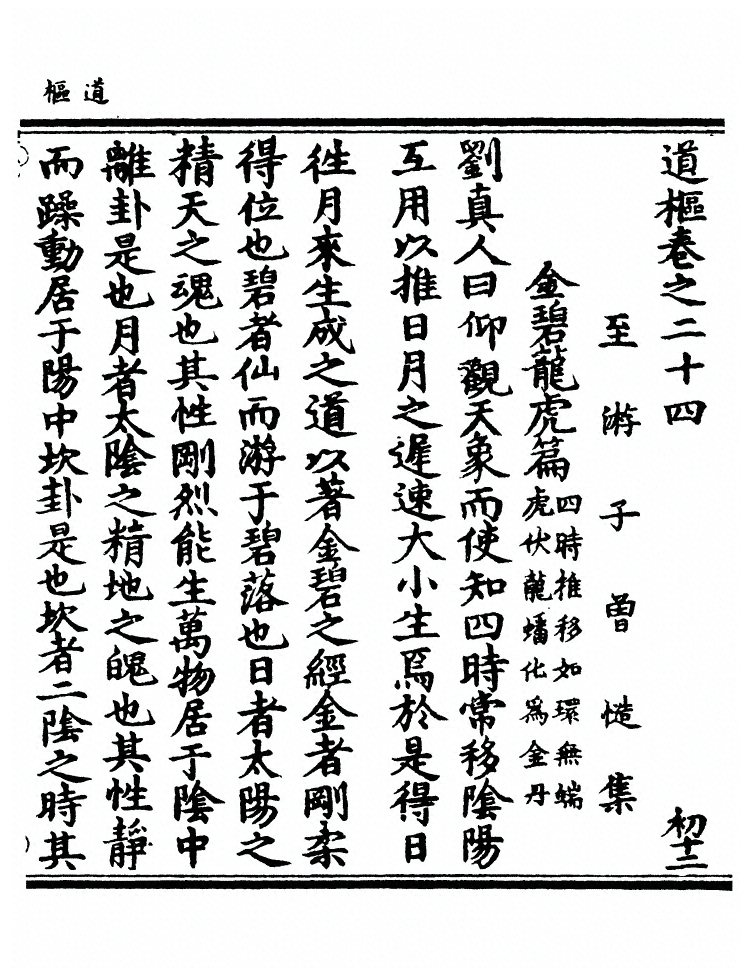 道樞
道樞卷之二十四 初十二
至游子曾慥集
金碧龍虎篇 四時推移如環無端
虎伏龍蟠化為金丹
劉真人曰仰觀天象而使知四時常移陰陽
互用以推日月之遲速大小生焉於是得日
徃月來生成之道以著金碧之經金者剛柔
得位也碧者仙而游于碧落也日者太陽之
精天之魂也其性剛烈能生萬物居于陰中
離卦是也月者太陰之精地之魄也其性靜
而躁動居于陽中坎卦是也坎者二陰之時其